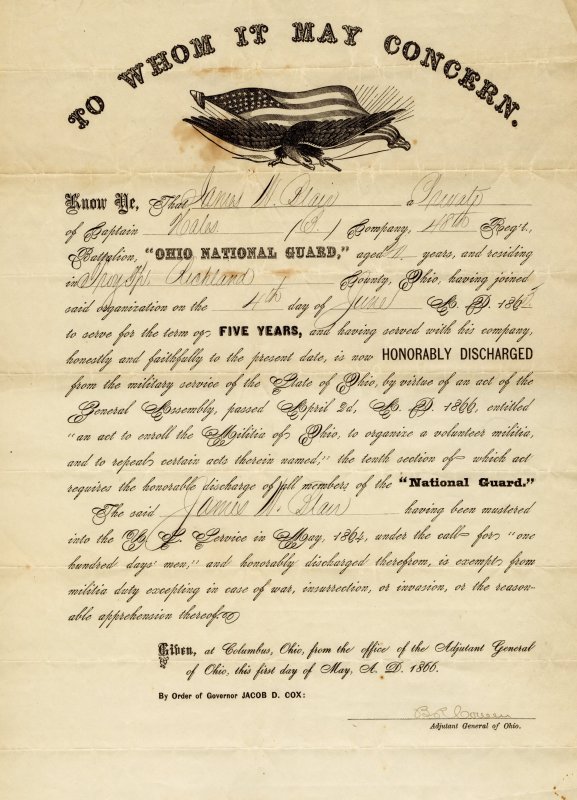 TO WHOM IT MAY CONCERN.
Know Ye, That James W. Blair a Private
of Captain (C.) Company, 48th Reg't,
Battalion, "OHIO NATIONAL GUARD," aged years, and residing
in Troy Richland County, Ohio, having joined
said organization on the 4th day of June A. D. 186
to serve for the term of FIVE YEARS, and having served with his company,
honestly and faithfully to the present date, is now HONORABLY DISCHARGED
from the military service of the State of Ohio, by virtue of an act of the
General Assembly, passed April 2d, A. D. 1866, entitled
"an act to enroll the Militia of Ohio, to organize a volunteer militia,
and to repeal certain acts therein named," the tenth section of which act
requires the honorable discharge of all members of the "National Guard."
The said James W. Blair having been mustered
into the U. S. Service in May, 1864, under the call for "one
hundred days' men," and honorably discharged therefrom, is exempt from
militia duty excepting in case of war, insurrection, or invasion, or the reason-
able apprehension thereof.
Given, at Columbus, Ohio, from the office of the Adjutant General
of Ohio, this first day of May, A. D. 1866.
By Order of Governor JACOB D. COX:
B. R. Cowen
Adjutant General of Ohio.